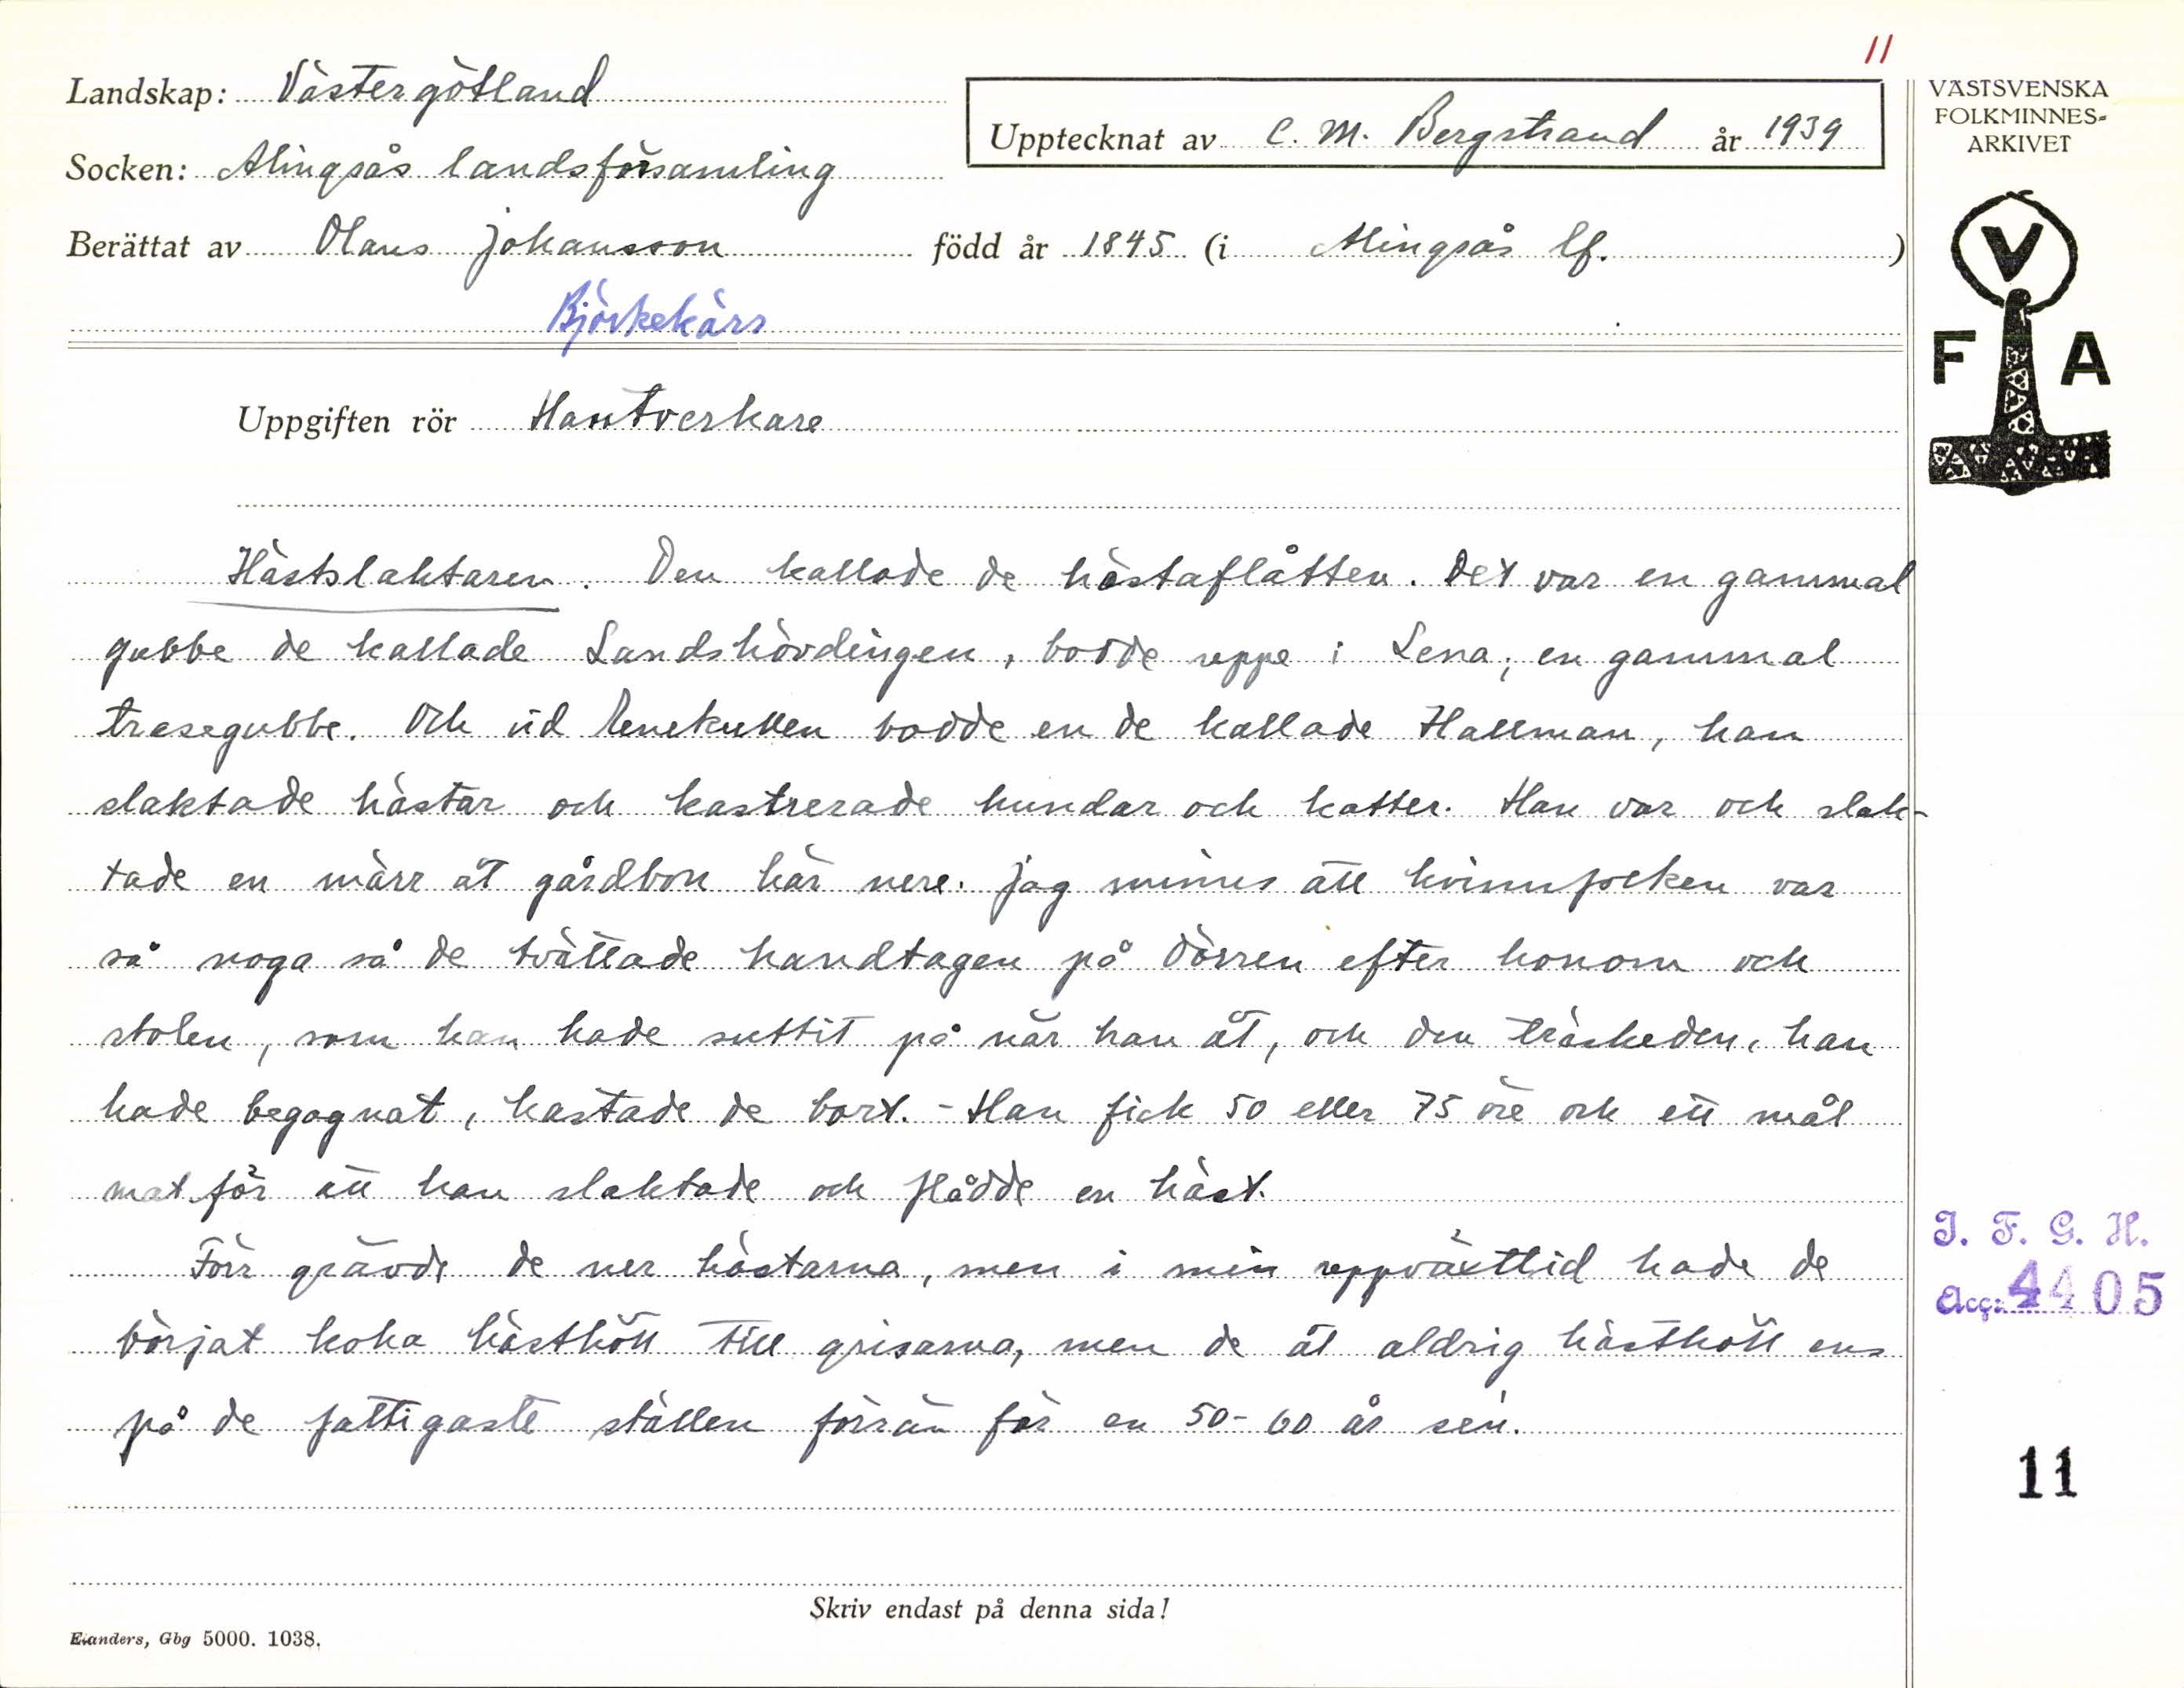 11
Landskap: Västergötland
Upptecknat av C. M. Bergstrand år 1939
VÄSTSVENSKA
FOLKMINNES-
ARKIVET
Socken: Alingsås landsförsamling
Berättat av Olaus Johansson född år 1845 (i Alingsås lf. )
Björkekärr
V
F A
Uppgiften rör Hantverkare
Hästslaktaren. Den kallade de hästaflåtten. Det var en gammal
gubbe de kallade Landshövdingen, bodde uppe i Lena, en gammal
trasegubbe. Och vid Lenekullen bodde en de kallade Hallman, han
slaktade hästar och kastrerade hundar och katter. Han var och slak-
tade en märr åt gårdbon här nere. Jag minns att kvinnfolken var
så noga så de tvättade handtagen på dörren efter honom och
stolen, som han hade suttit på när han åt, och den träskeden, han
hade begagnat, kastade de bort. - Han fick 50 eller 75 öre och ett mål
mat för att han slaktade och flådde en häst.
Förr grävde de ner hästarna, men i min uppväxttid hade de
börjat koka hästkött till grisarna, men de åt aldrig hästkött ens
på de fattigaste ställen förrän för en 50-60 år sen.
I. F. G. H.
Acc: 4405
11
Skriv endast på denna sida!
Elanders, Gbg 5000. 1038.